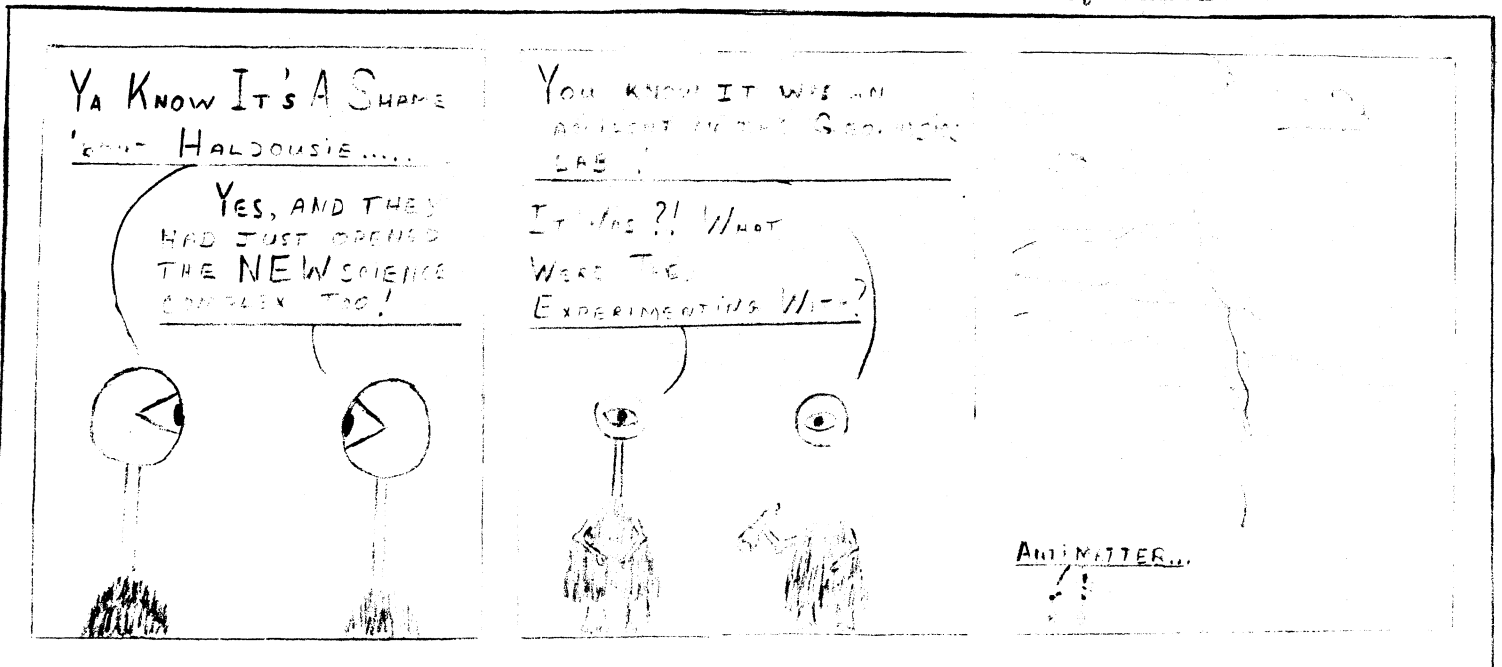 YA KNOW IT'S A SHAME
HALDOUSIE.....
YES, AND THEY
HAD JUST OPENED
THE NEW SCIENCE
COMPLEX TOO!
YOU KNOW IT WAS AN
LAB !
IT WAS?! WHAT
WERE
EXPERIMENTING
ANTIMATTER...